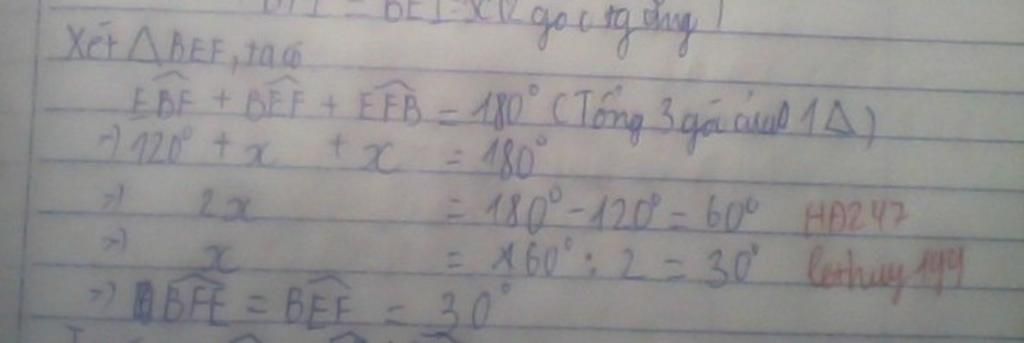 = BEI = x (2 góc tg ứng)
Xét △BEF, ta có
EBF + BEF + EFB = 180° (Tổng 3 góc của 1△)
=> 120° + x + x = 180°
=> 2x = 180° - 120° = 60° HD247
=> x = 60° : 2 = 30° lethuy194
=> BFE = BEF = 30°